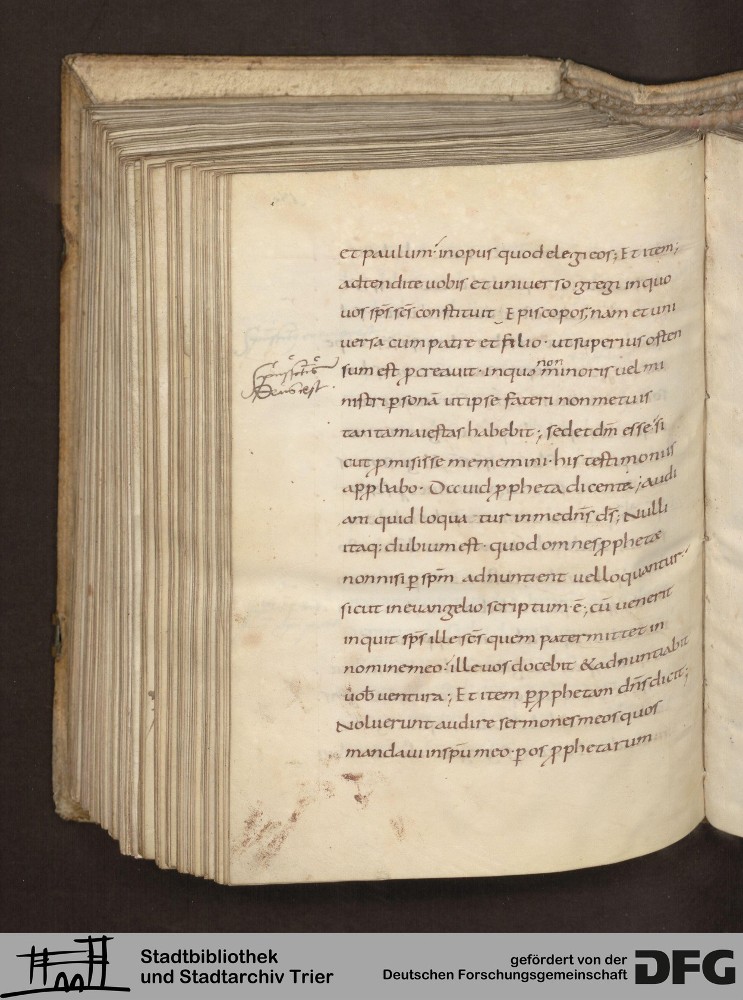 et paulum· in opus quod elegi eos; Et item;
adtendite uobis et uniuerso gregi in quo
uos sps scs constituit Episcopos; nam et uni
uersa cum patre et filio· ut superius osten
sum est pcreauit· in quo non minoris uel mi
nistri psonā ut ipse fateri non metuis
tanta maiestas habebit; sed et dm̄ esse si
cut pmisisse me memini· his testimoniis
appbabo· Dauid ppheta dicente; audi
am quid loquatur in me dns ds; Nulli
itaq: dubium est· quod omnes pphetae
non nisi p spm̄ adnuntient uel loquantur·
sicut in euangelio scriptum· ē; cū uenerit
inquit sps ille scs quem pater mittet in
nomine meo· ille uos docebit & adnuntiabit
uob uentura; Et item p pphetam dns dicit;
Noluerunt audire sermones meos quos
mandaui in spū meo· p os pphetarum
Deus est
Stadtbibliothek
und Stadtarchiv Trier
gefördert von der
Deutschen Forschungsgemeinschaft
DFG